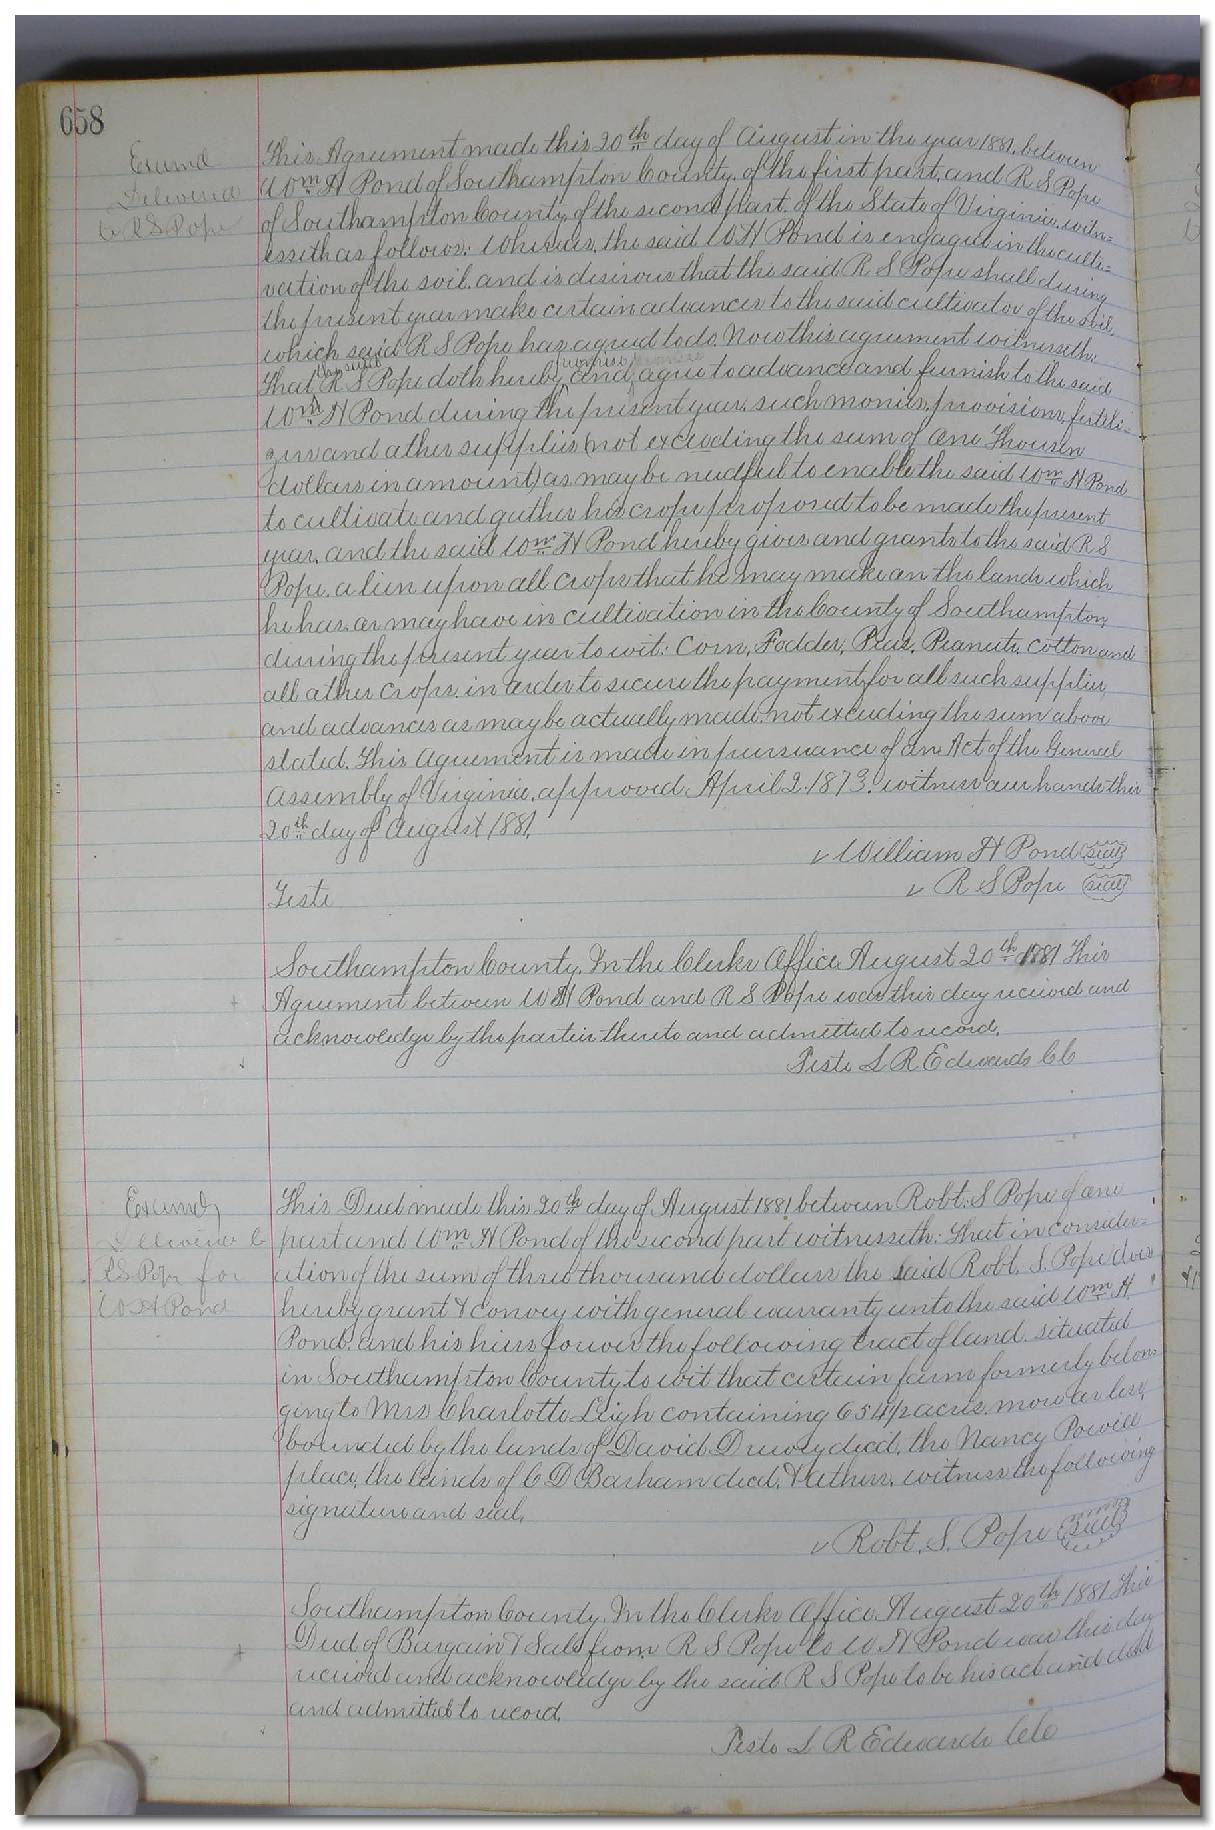 658
Examd
Delivered
to R S Pope
This Agreement made this 20th day of August in the year 1881, between
Wm H Pond of Southampton County, of the first part, and R S Pope
of Southampton County, of the second part, of the State of Virginia, witn=
esseth as follows: Whereas, the said W H Pond is engaged in the culti=
vation of the soil, and is desirous that the said R S Pope shall during
the present year make certain advances to the said cultivator of the soil,
which said R S Pope has agreed to do. Now this agreement witnesseth:
That R S Pope doth hereby promise and agree to advance and furnish to the said
Wm H Pond during the present year, such monies, provisions, fertili-
zers and other supplies (not exceeding the sum of One Thousen
dollars in amount) as may be needful to enable the said Wm H Pond
to cultivate and gather his crops proposed to be made the present
year, and the said Wm H Pond hereby gives and grants to the said R S
Pope, a lien upon all crops that he may make on the lands which
he has or may have in cultivation in the County of Southampton,
during the present year to wit: Corn, Fodder, Peas, Peanuts, Cotton and
all other crops, in order to secure the payment for all such supplies
and advances as may be actually made, not exceeding the sum above
stated. This Agreement is made in pursuance of an Act of the General
Assembly of Virginia, approved April 2, 1873. witness our hands this
20th day of August 1881.
William H Pond (seal)
R S Pope (seal)
Teste
Southampton County, In the Clerks Office August 20th 1881 This
Agreement between W H Pond and R S Pope was this day received and
acknowledge by the parties thereto and admitted to record.
Teste L R Edwards CC
Examd,
Delivered to
R S Pope for
W H Pond
This Deed made this 20th day of August 1881 between Robt. S Pope of one
part and Wm H Pond of the second part witnesseth: That in consider=
ation of the sum of three thousand dollars the said Robt. S. Pope does
hereby grant & convey with general warranty unto the said Wm H
Pond, and his hiers forever the following tract of land, situated
in Southampton County, to wit that certain farm formerly belon-
ging to Mrs Charlotte Leigh containing 654 1/2 acres, more or less,
bounded by the lands of David Drewry decd, the Nancy Powell
place, the lands of C D Barham decd, & others, witness the following
signature and seal,
Robt. S. Pope (seal)
Southampton County, In the Clerks Office August 20th 1881 This
Deed of Bargain & Sale from R S Pope to W H Pond was this day
received and acknowledge by the said R S Pope to be his act and deed
and admitted to record.
Teste L R Edwards CC